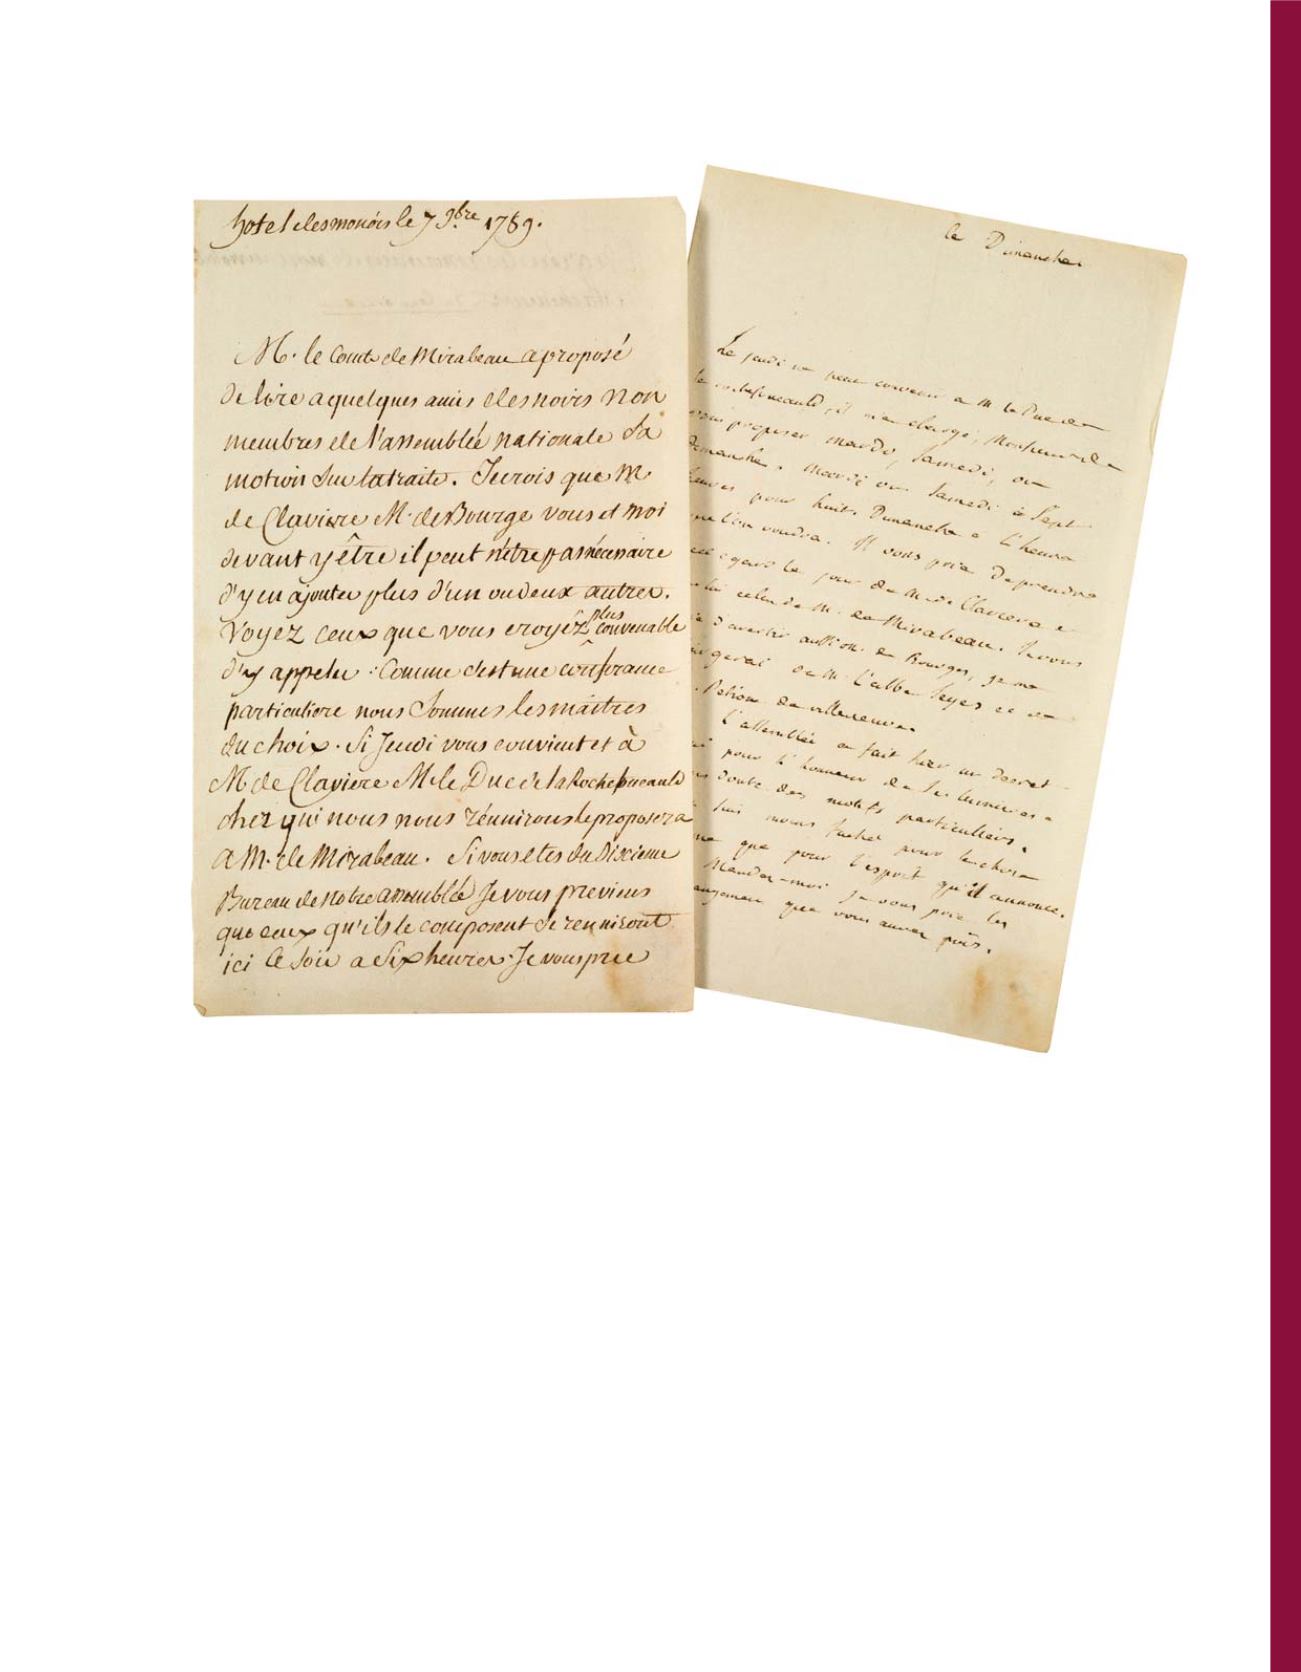 hotel des monóies le 7 9.bre 1789.
M. le Comte de Mirabeau a proposé
de lire a quelques amis des noirs non
membres de l'assemblée nationale Sa
motion Sur la traite. Je crois que M
de Claviere M. de Bourge vous et moi
devant y être il peut n'être pas nécessaire
d'y en ajouter plus d'un ou deux autres.
Voyez ceux que vous croyéz plus convenable
d'y appeler : Comme c'est une conférance
particuliere nous Sommes les maitres
du choix. Si Jeudi vous convient et à
M de Claviere M le Duc de la Rochefoucauld
chez qui nous nous réunirons le proposera
a M. de Mirabeau. Si vous etes du Dixieme
Bureau de notre assemblée Je vous previens
que ceux qu'ils le composent Se reuniront
ici ce Soir a Six heures. Je vous prie
le Dimanche.
Le jeudi ne peut convenir a M le Duc de
la rochefoucauld, il m'a chargé, Monsieur de
vous proposer mardi, Samedi, ou
Dimanche. Mardi ou Samedi à Sept
heures pour huit. Dimanche a l'heure
que l'on voudra. Il vous prie de prendre
cet egard le jour de M. de Claviere e
lui celui de M. de Mirabeau. Je vous
d'avertir aussi M. de Bourges, je me
gerai de M. l'abbé Seyes et de
Petion de villeneuve.
L'assemblée a fait hier un decret
pour l'honneur de Ses lumieres.
doute des motifs particuliers.
Suis moins faché pour la chose
que pour l'esprit qu'il annonce.
Mandez-moi je vous prie les
que vous aurez pris.